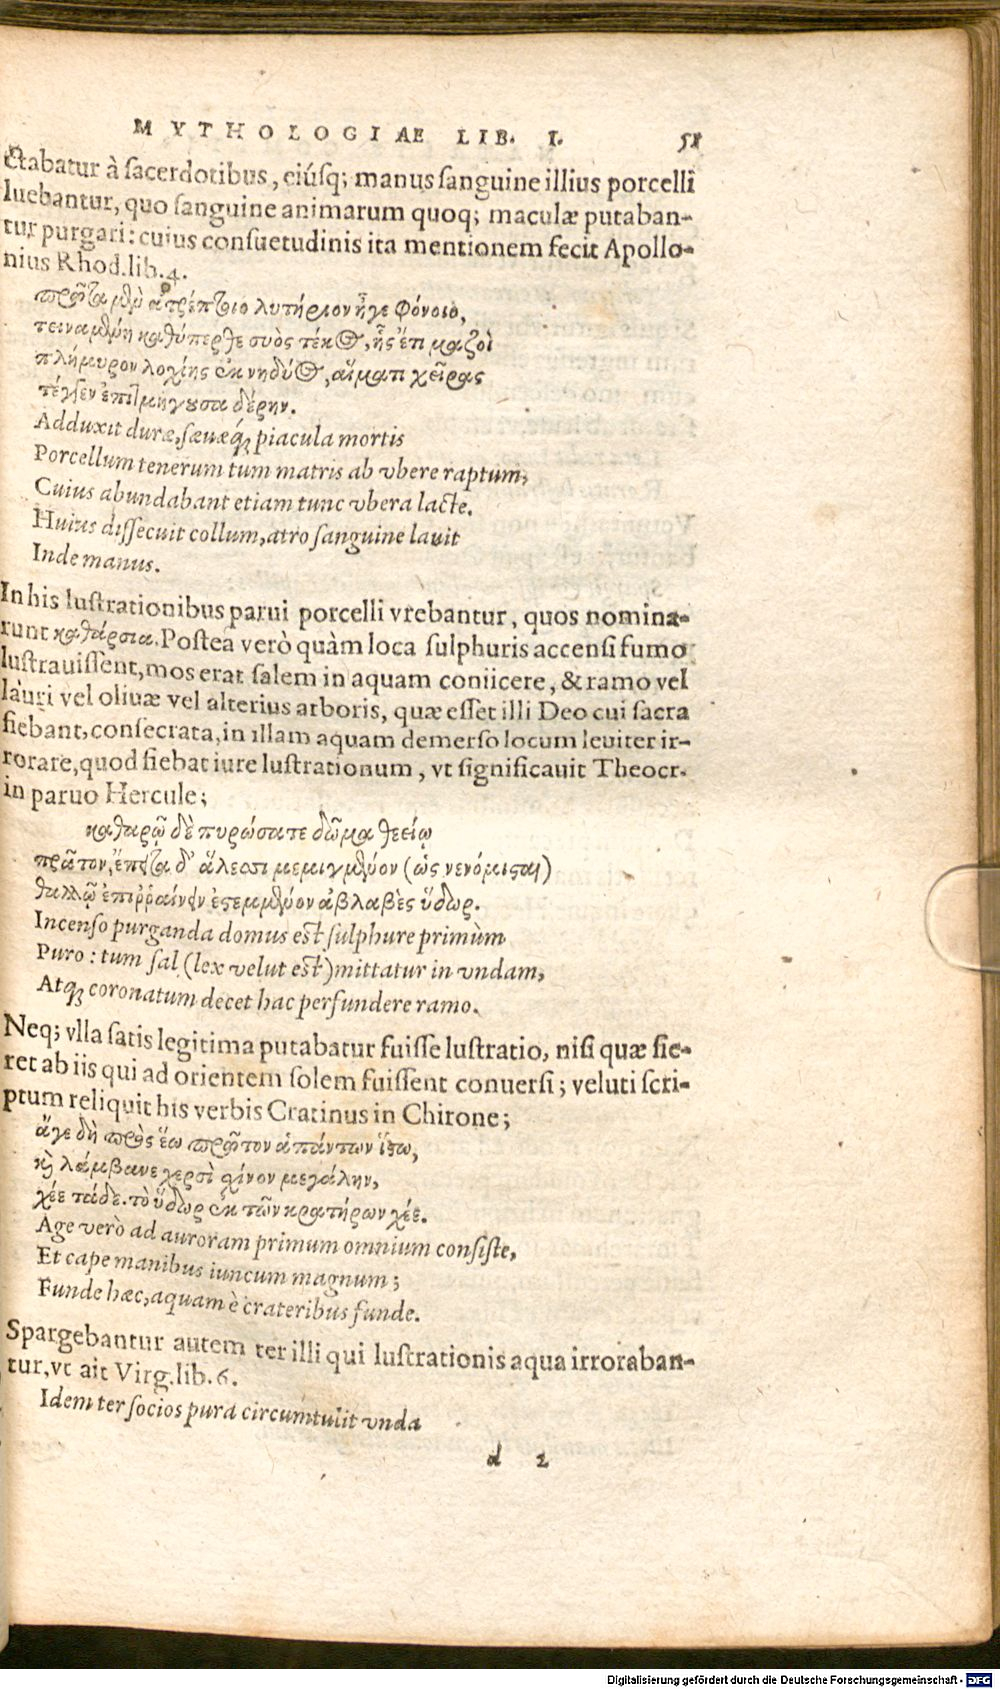 MYTHOLOGIAE LIB. I. 51
ctabatur à sacerdotibus, eiúsq; manus sanguine illius porcelli
luebantur, quo sanguine animarum quoq; maculæ putaban-
tur purgari: cuius consuetudinis ita mentionem fecit Apollo-
nius Rhod. lib. 4.
πρῶτα μὲν ἀτρέπτοιο λυτήριον ἧγε φόνοιο,
τειναμένη καθύπερθε συὸς τέκος, ἧς ἔτι μαζοὶ
πλήμυρον λοχίης ἐκ νηδύος, αἵματι χεῖρας
τέγγεν ἐπιτμήγουσα δέρην.
Adduxit duræ, sæuæq; piacula mortis
Porcellum tenerum tum matris ab vbere raptum,
Cuius abundabant etiam tunc vbera lacte.
Huius dissecuit collum, atro sanguine lauit
Inde manus.
In his lustrationibus parui porcelli vrebantur, quos nomina-
runt καθάρσια. Postea verò quàm loca sulphuris accensi fumo
lustrauissent, mos erat salem in aquam coniicere, & ramo vel
lauri vel oliuæ vel alterius arboris, quæ esset illi Deo cui sacra
fiebant, consecrata, in illam aquam demerso locum leuiter ir-
rorare, quod fiebat iure lustrationum, vt significauit Theocr.
in paruo Hercule;
καθαρῷ δὲ πυρώσατε δῶμα θεείῳ
πρῶτον, ἔπειτα δ' ἅλεσσι μεμιγμένον (ὡς νενόμισται)
θαλλῷ ἐπιῤῥαίνειν ἐστεμμένον ἀβλαβὲς ὕδωρ.
Incenso purganda domus est sulphure primùm
Puro: tum sal (lex velut est) mittatur in vndam,
Atq; coronatum decet hac perfundere ramo.
Neq; vlla satis legitima putabatur fuisse lustratio, nisi quæ fie-
ret ab iis qui ad orientem solem fuissent conuersi; veluti scri-
ptum reliquit his verbis Cratinus in Chirone;
ἄγε δὴ πρὸς ἕω πρῶτον ἁπάντων ἵστω,
καὶ λάμβανε χερσὶ σχίνον μεγάλην,
χέε τάδε. τὸ ὕδωρ ἐκ τῶν κρατήρων χέε.
Age verò ad auroram primum omnium consiste,
Et cape manibus iuncum magnum;
Funde hæc, aquam è crateribus funde.
Spargebantur autem ter illi qui lustrationis aqua irroraban-
tur, vt ait Virg. lib. 6.
Idem ter socios pura circumtulit vnda
d 2
Digitalisierung gefördert durch die Deutsche Forschungsgemeinschaft - DFG